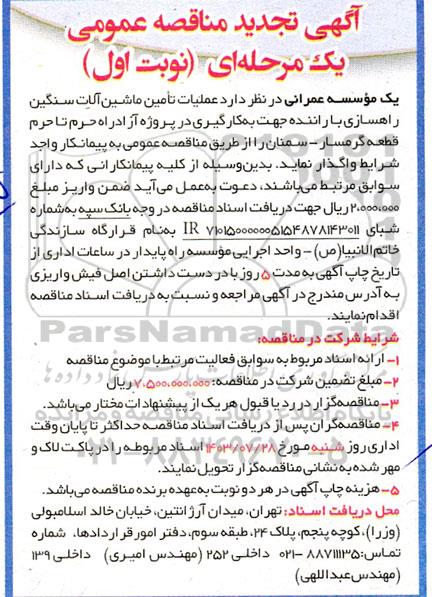 آگهی تجدید مناقصه عمومی
یک مرحله‌ای (نوبت اول)
یک مؤسسه عمرانی در نظر دارد عملیات تأمین ماشین‌آلات سنگین
راهسازی با راننده جهت به‌کارگیری در پروژه آزادراه حرم تا حرم
قطعه گرمسار – سمنان را از طریق مناقصه عمومی به پیمانکار واجد
شرایط واگذار نماید. بدین‌وسیله از کلیه پیمانکارانی که دارای
سوابق مرتبط می‌باشند، دعوت به‌عمل می‌آید ضمن واریز مبلغ
۲٫۰۰۰٫۰۰۰ ریال جهت دریافت اسناد مناقصه در وجه بانک سپه به‌شماره
شبای IR ۷۱۰۱۵۰۰۰۰۰۰۰۵۱۵۴۸۷۸۱۴۳۰۱۱ به‌نام قرارگاه سازندگی
خاتم‌الانبیا(ص) – واحد اجرایی مؤسسه راه پایدار در ساعات اداری از
تاریخ چاپ آگهی به مدت ۵ روز با در دست داشتن اصل فیش واریزی
به آدرس مندرج در آگهی مراجعه و نسبت به دریافت اسناد مناقصه
اقدام نمایند.
شرایط شرکت در مناقصه:
۱– ارائه اسناد مربوط به سوابق فعالیت مرتبط با موضوع مناقصه
۲– مبلغ تضمین شرکت در مناقصه: ۷٫۵۰۰٫۰۰۰٫۰۰۰ ریال
۳– مناقصه‌گزار در رد یا قبول هر یک از پیشنهادات مختار می‌باشد.
۴– مناقصه‌گران پس از دریافت اسناد مناقصه حداکثر تا پایان وقت
اداری روز شنبه مورخ ۱۴۰۳/۰۷/۲۸ اسناد مربوطه را در پاکت لاک و
مهر شده به نشانی مناقصه‌گزار تحویل نمایند.
۵– هزینه چاپ آگهی در هر دو نوبت به‌عهده برنده مناقصه می‌باشد.
محل دریافت اسناد: تهران، میدان آرژانتین، خیابان خالد اسلامبولی
(وزرا)، کوچه پنجم، پلاک ۲۴، طبقه سوم، دفتر امور قراردادها، شماره
تماس: ۸۸۷۱۱۱۳۵–۰۲۱ داخلی ۲۵۲ (مهندس امیری) داخلی ۱۳۹
(مهندس عبداللهی)
ParsNamadData